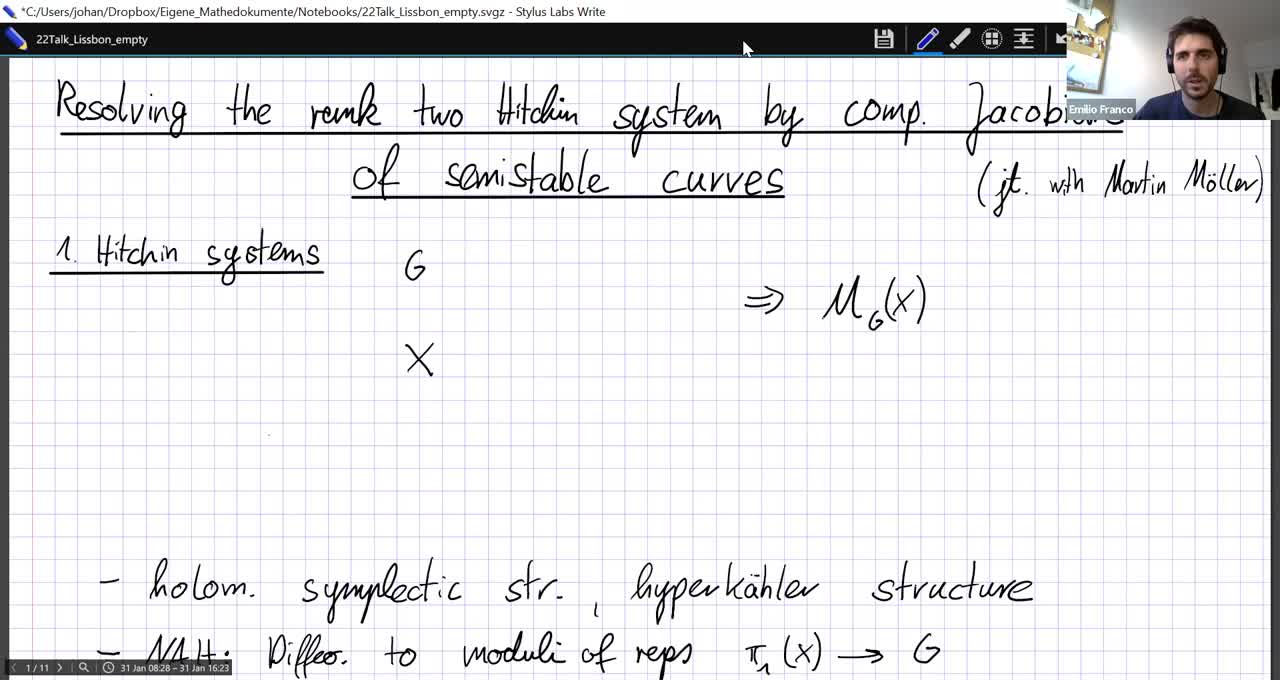 *C:/Users/johan/Dropbox/Eigene_Mathedokumente/Notebooks/22Talk_Lissbon_empty.svgz - Stylus Labs Write
22Talk_Lissbon_empty
Emilio Franco
Resolving the rank two Hitchin system by comp.
of semistable curves
(jt. with Martin Möller)
1. Hitchin systems
G
⇒ M_G(X)
X
- holom. symplectic str., hyperkähler structure
- NAH: Diffeo. to moduli of reps π₁(X) → G
1 / 11
31 Jan 08:28 – 31 Jan 16:23